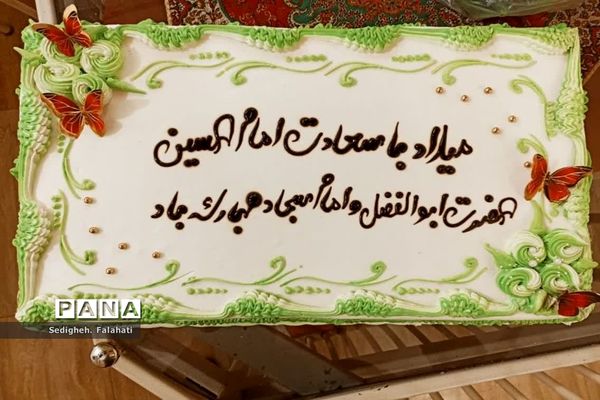 میلاد با سعادت امام حسین
حضرت ابوالفضل و امام سجاد مبارک باد
PANA
Sedigheh. Falahati